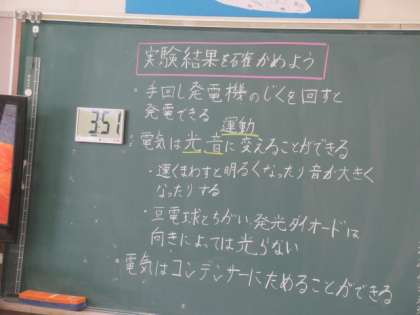 実験結果を確かめよう
・手回し発電機のじくを回すと
発電できる
運動
・電気は光、音に変えることができる
・速くまわすと明るくなったり音が大きく
なったりする
・豆電球とちがい発光ダイオードは
向きによっては光らない
電気はコンデンサーにためることができる
3:51